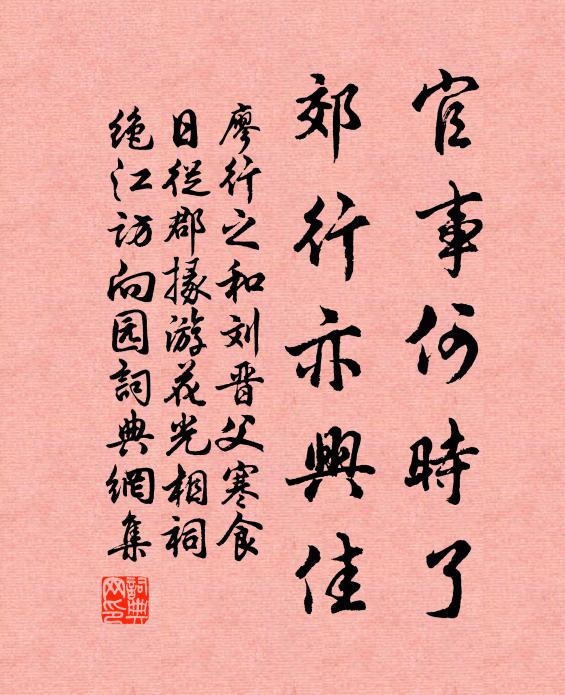 官事何時了
郊行亦興佳
廖行之和刘晋父寒食
日從郡掾游花光相祠
绝江访向园詞典網集
詞典
网印